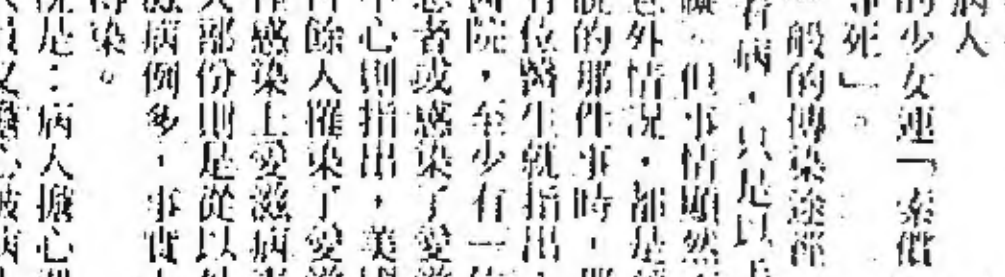 病人
的少女連「索償
死」。
般的傳染途徑
病,只是以
。但事情顯然
外情況,都是
的那件事時,
位醫生就指出,
院,至少有一
者或感染了愛
心則指出,美
餘人罹染了愛
感染上愛滋病
部份則是從以
病例多,事實
染。
是:病人擔心